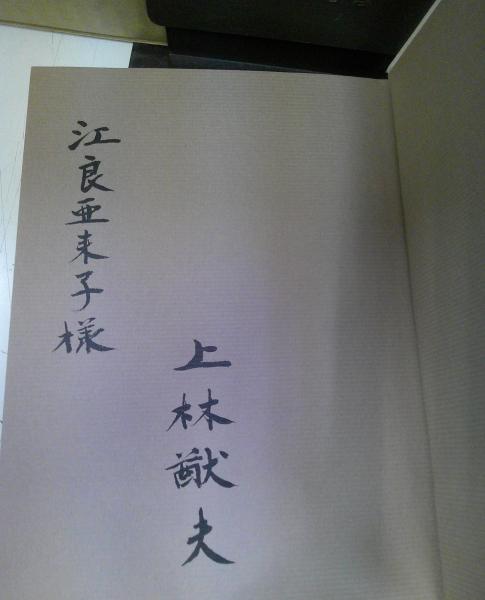 江良亜来子様
上林猷夫